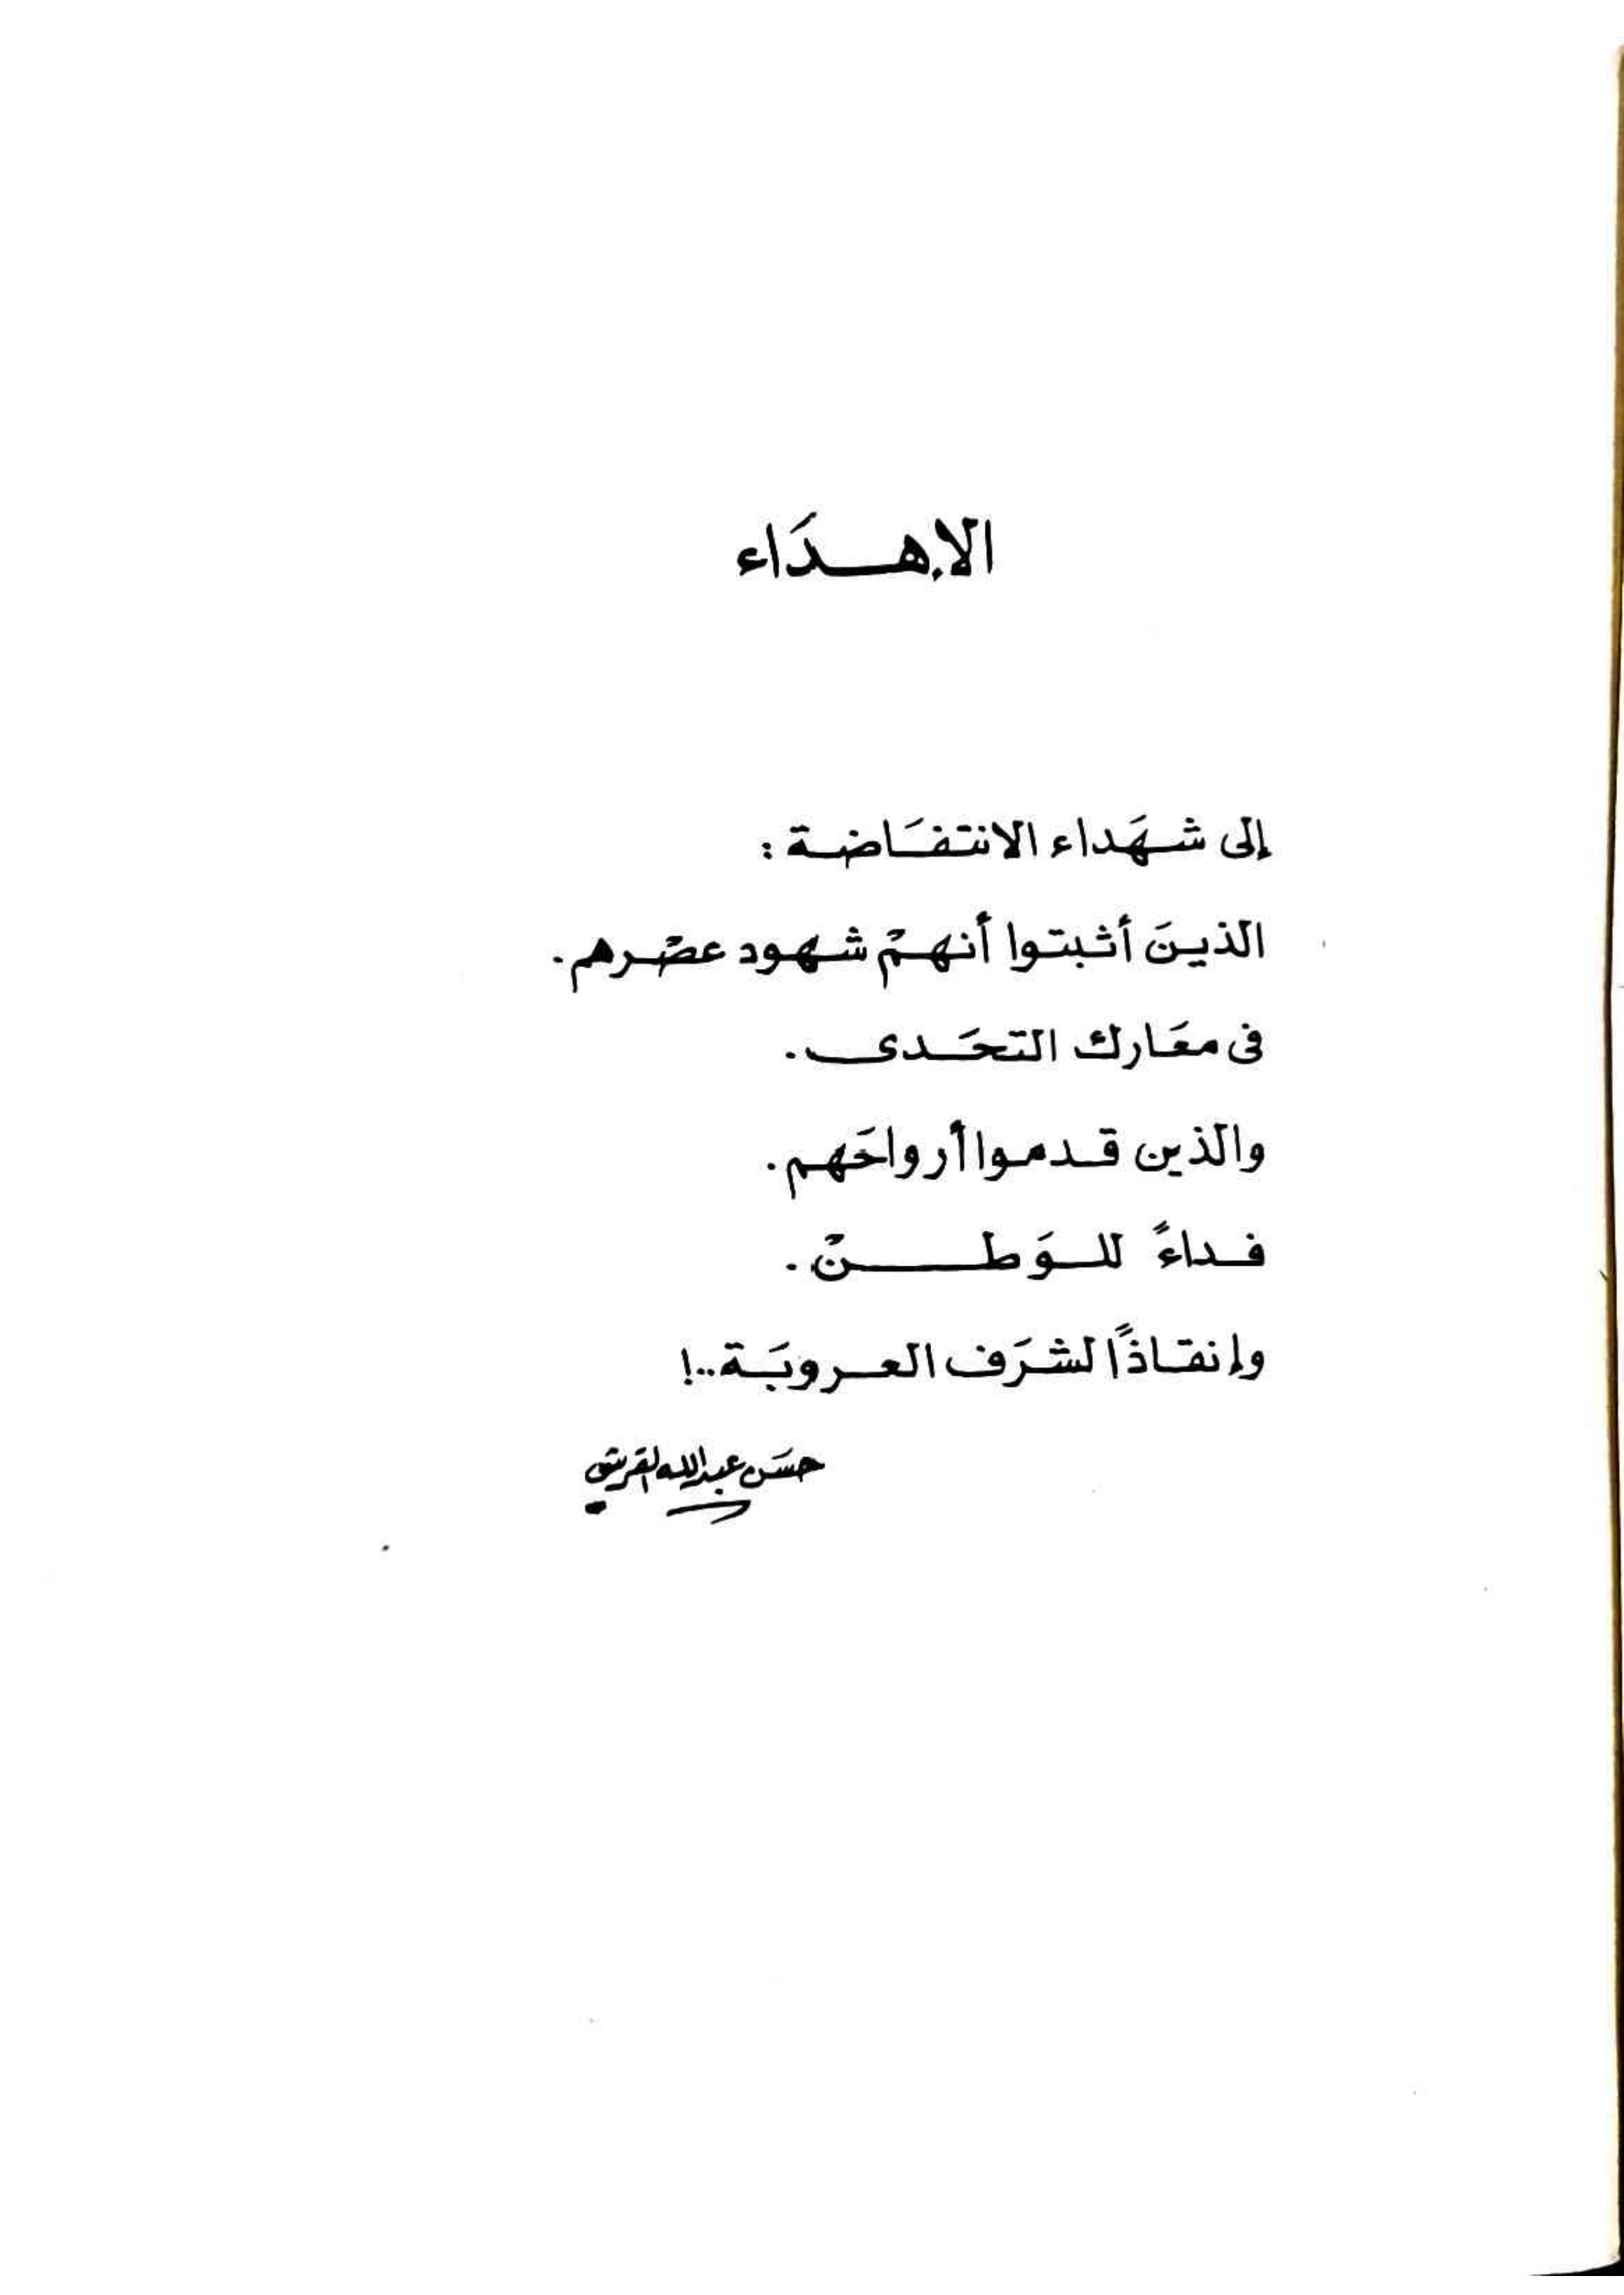 الإهـــدَاء
إلى شهَداء الانتفَاضة :
الذينَ أثبتوا أنهمْ شهود عصْرهم .
فى معَارك التحَدى .
والذين قدموا أرواحَهم .
فداءً للوَطن .
وإنقاذًا لشرَف العروبَة ..!
حسَن عبدالله القرشي